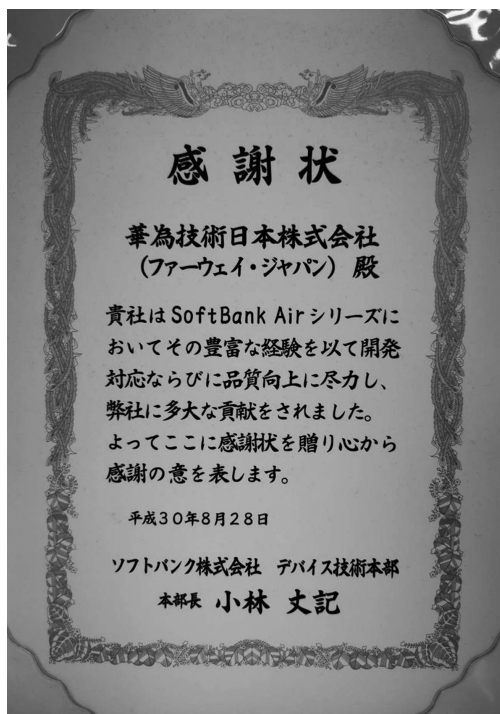 感謝状
華為技術日本株式会社
(ファーウェイ・ジャパン) 殿
貴社は SoftBank Air シリーズに
おいてその豊富な経験を以て開発
対応ならびに品質向上に尽力し、
弊社に多大な貢献をされました。
よってここに感謝状を贈り心から
感謝の意を表します。
平成30年8月28日
ソフトバンク株式会社 デバイス技術本部
本部長 小林 丈記